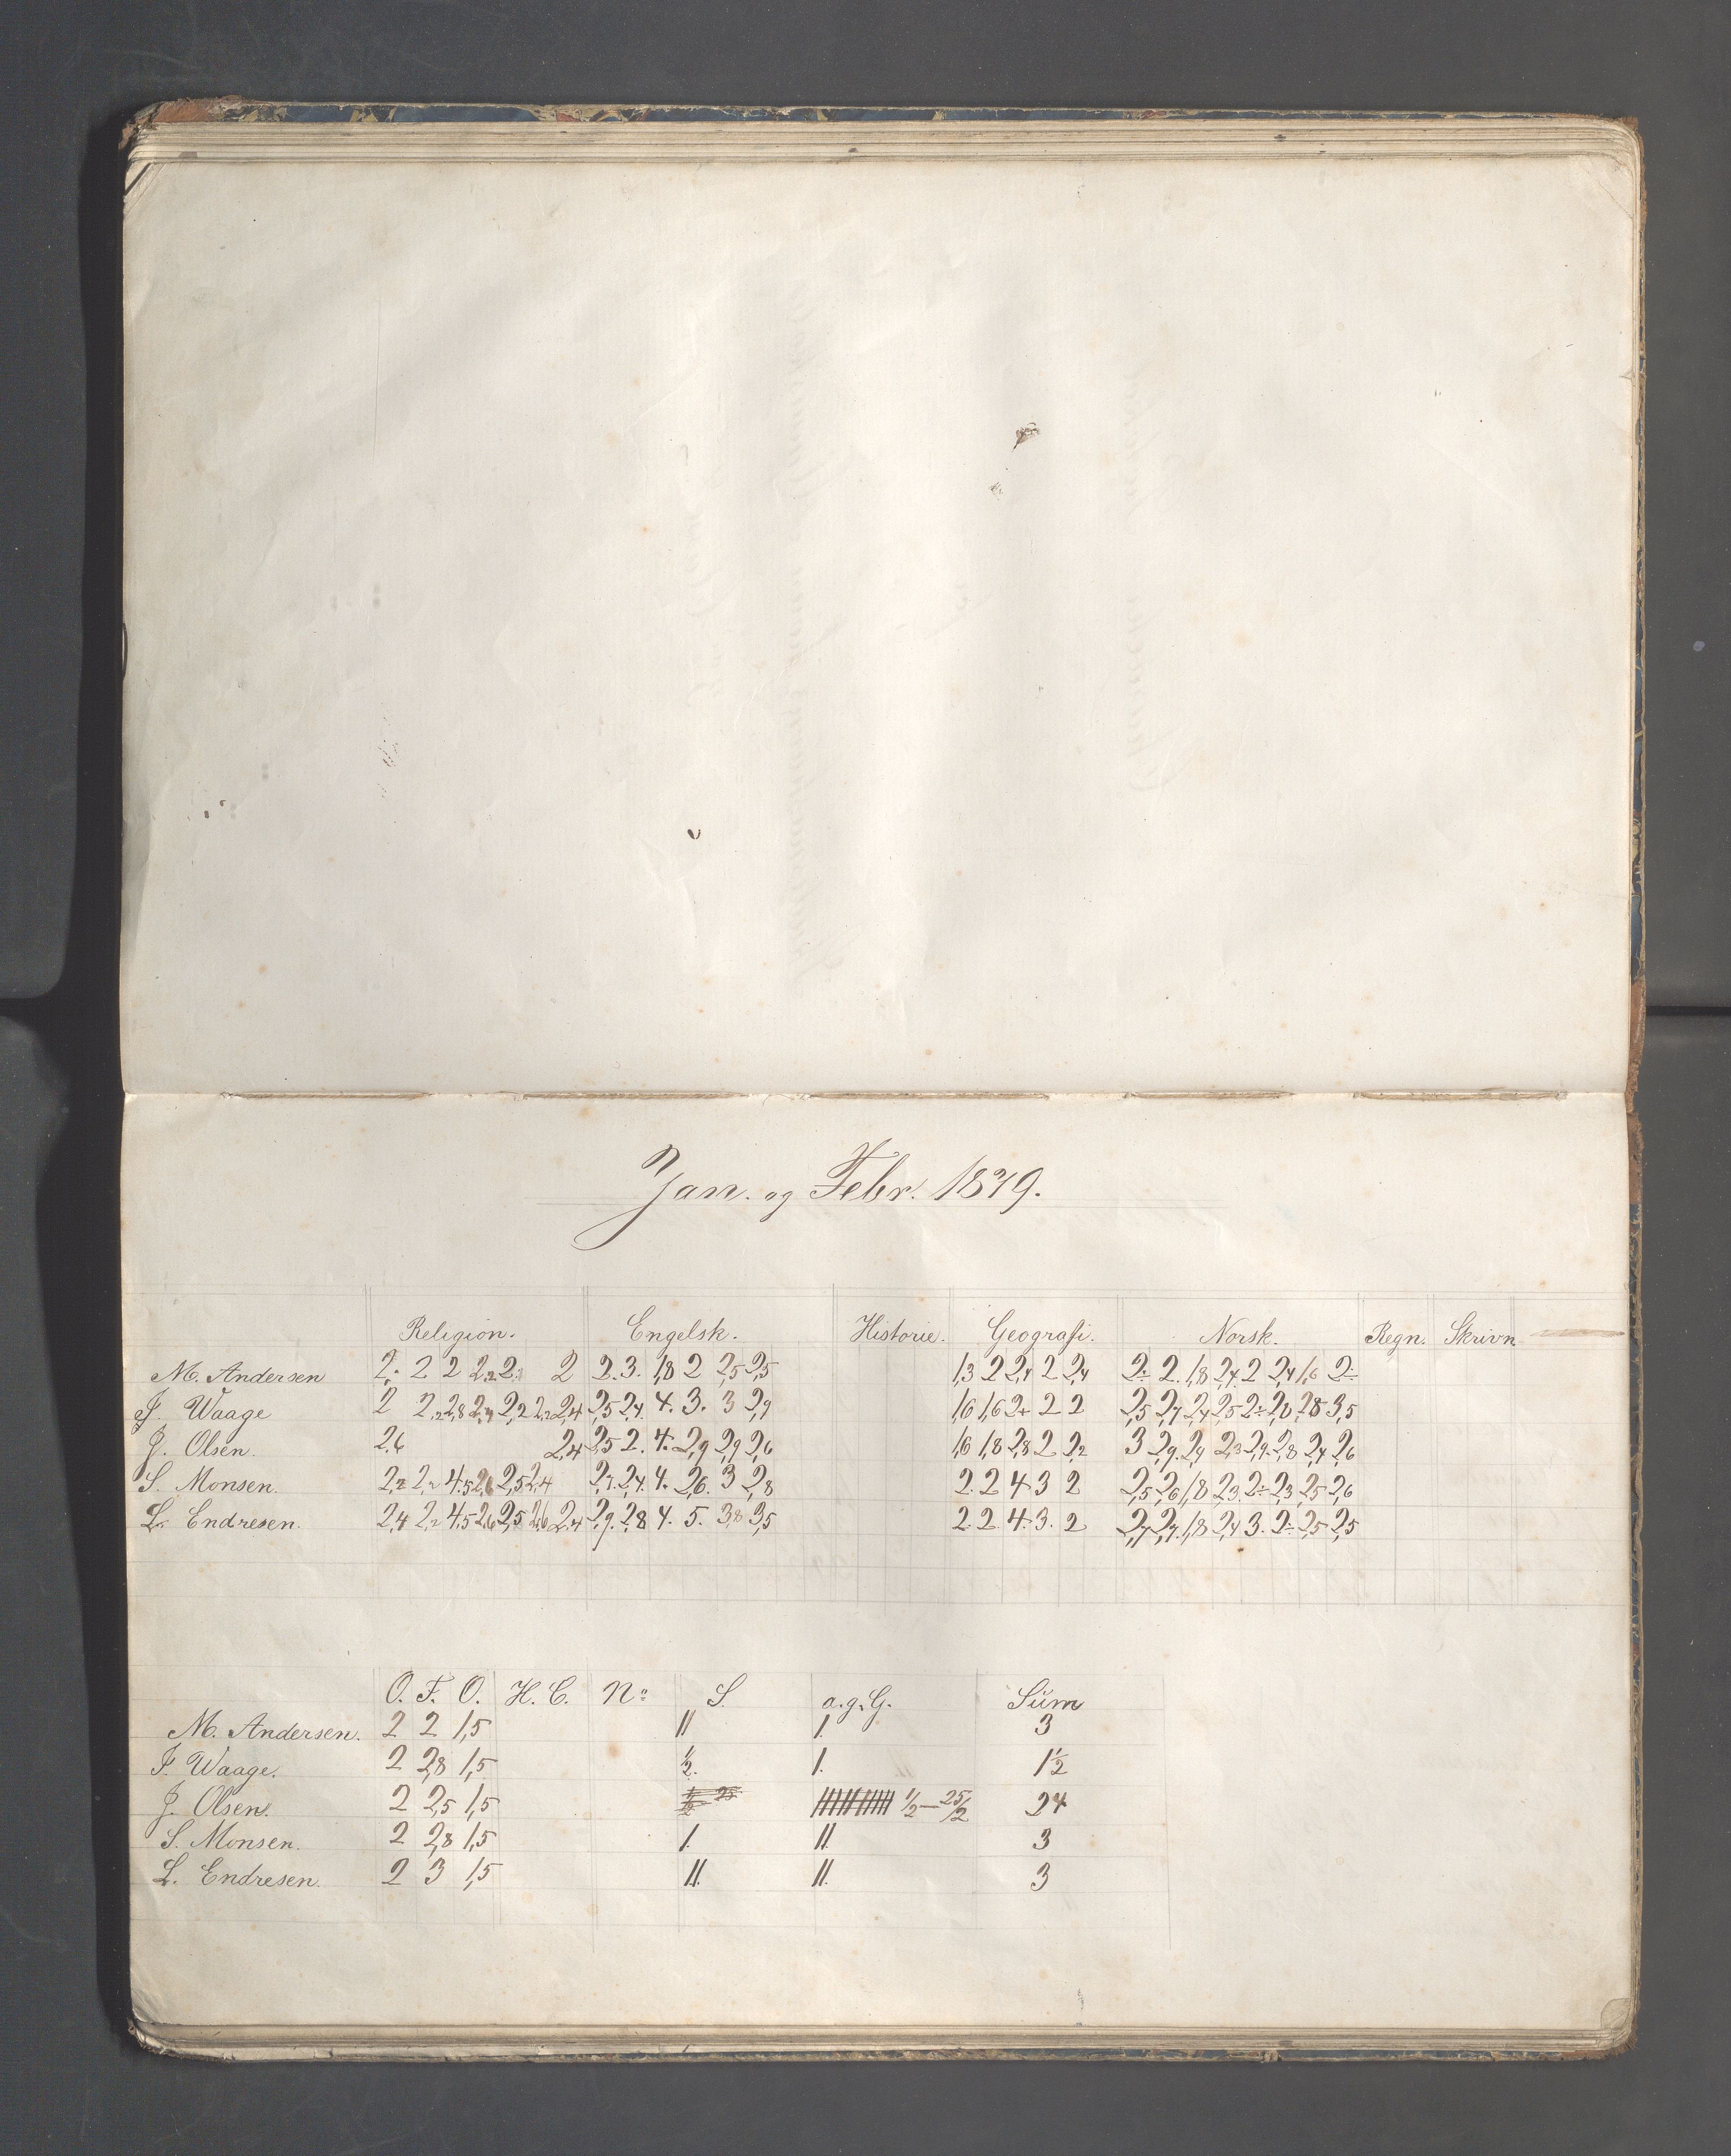 Jan. og Febr. 1879.
Religion. Engelsk. Historie. Geografi. Norsk. Regn. Skrivn.
M. Andersen 2 2 2 2,2 2 2. 3. 1,8 2 2,5 2,5 1,3 2 2,4 2 2,4 2÷ 2. 1,8 2,4 2 2,4 1,6 2÷
F. Waage 2 2,2 2,8 2,2 2,4 2,5 2,4. 4. 3. 3 2,9 1,6 1,6 2+ 2 2 2,5 2,7 2,4 2,5 2÷ 2,8 2,8 3,5
J. Olsen. 2,6 2,4 2,5 2. 4. 2,9 2,9 2,6 1,6 1,8 2,8 2 2,2 3 2,9. 2,4 2,3 2,9. 2,8 2,4 2,6
S. Monsen. 2,2 2,2 4,5 2,6 2,5 2,4 2,7. 2,4. 4. 2,6. 3 2,8 2. 2 4 3 2 2,5 2,6 1,8 2,3. 2÷ 2,3 2,5 2,6
L. Endresen. 2,4 2,2 4,5 2,6 2,5 2,6 2,4 2,9. 2,8 4. 5. 3,8 3,5 2. 2. 4. 3. 2 2,7 2,7. 1,8 2,4 3. 2÷ 2,5 2,5
O. F. O. H. C. No S. a.g.G. Sum
M. Andersen. 2 2 1,5 11 1. 3
F. Waage. 2 2,8 1,5 1/2. 1. 1 1/2
J. Olsen. 2 2,5 1,5 1/2 — 25/2 24
S. Monsen. 2 2,8 1,5 1. 11. 3
L. Endresen. 2 3 1,5 11. 11. 3